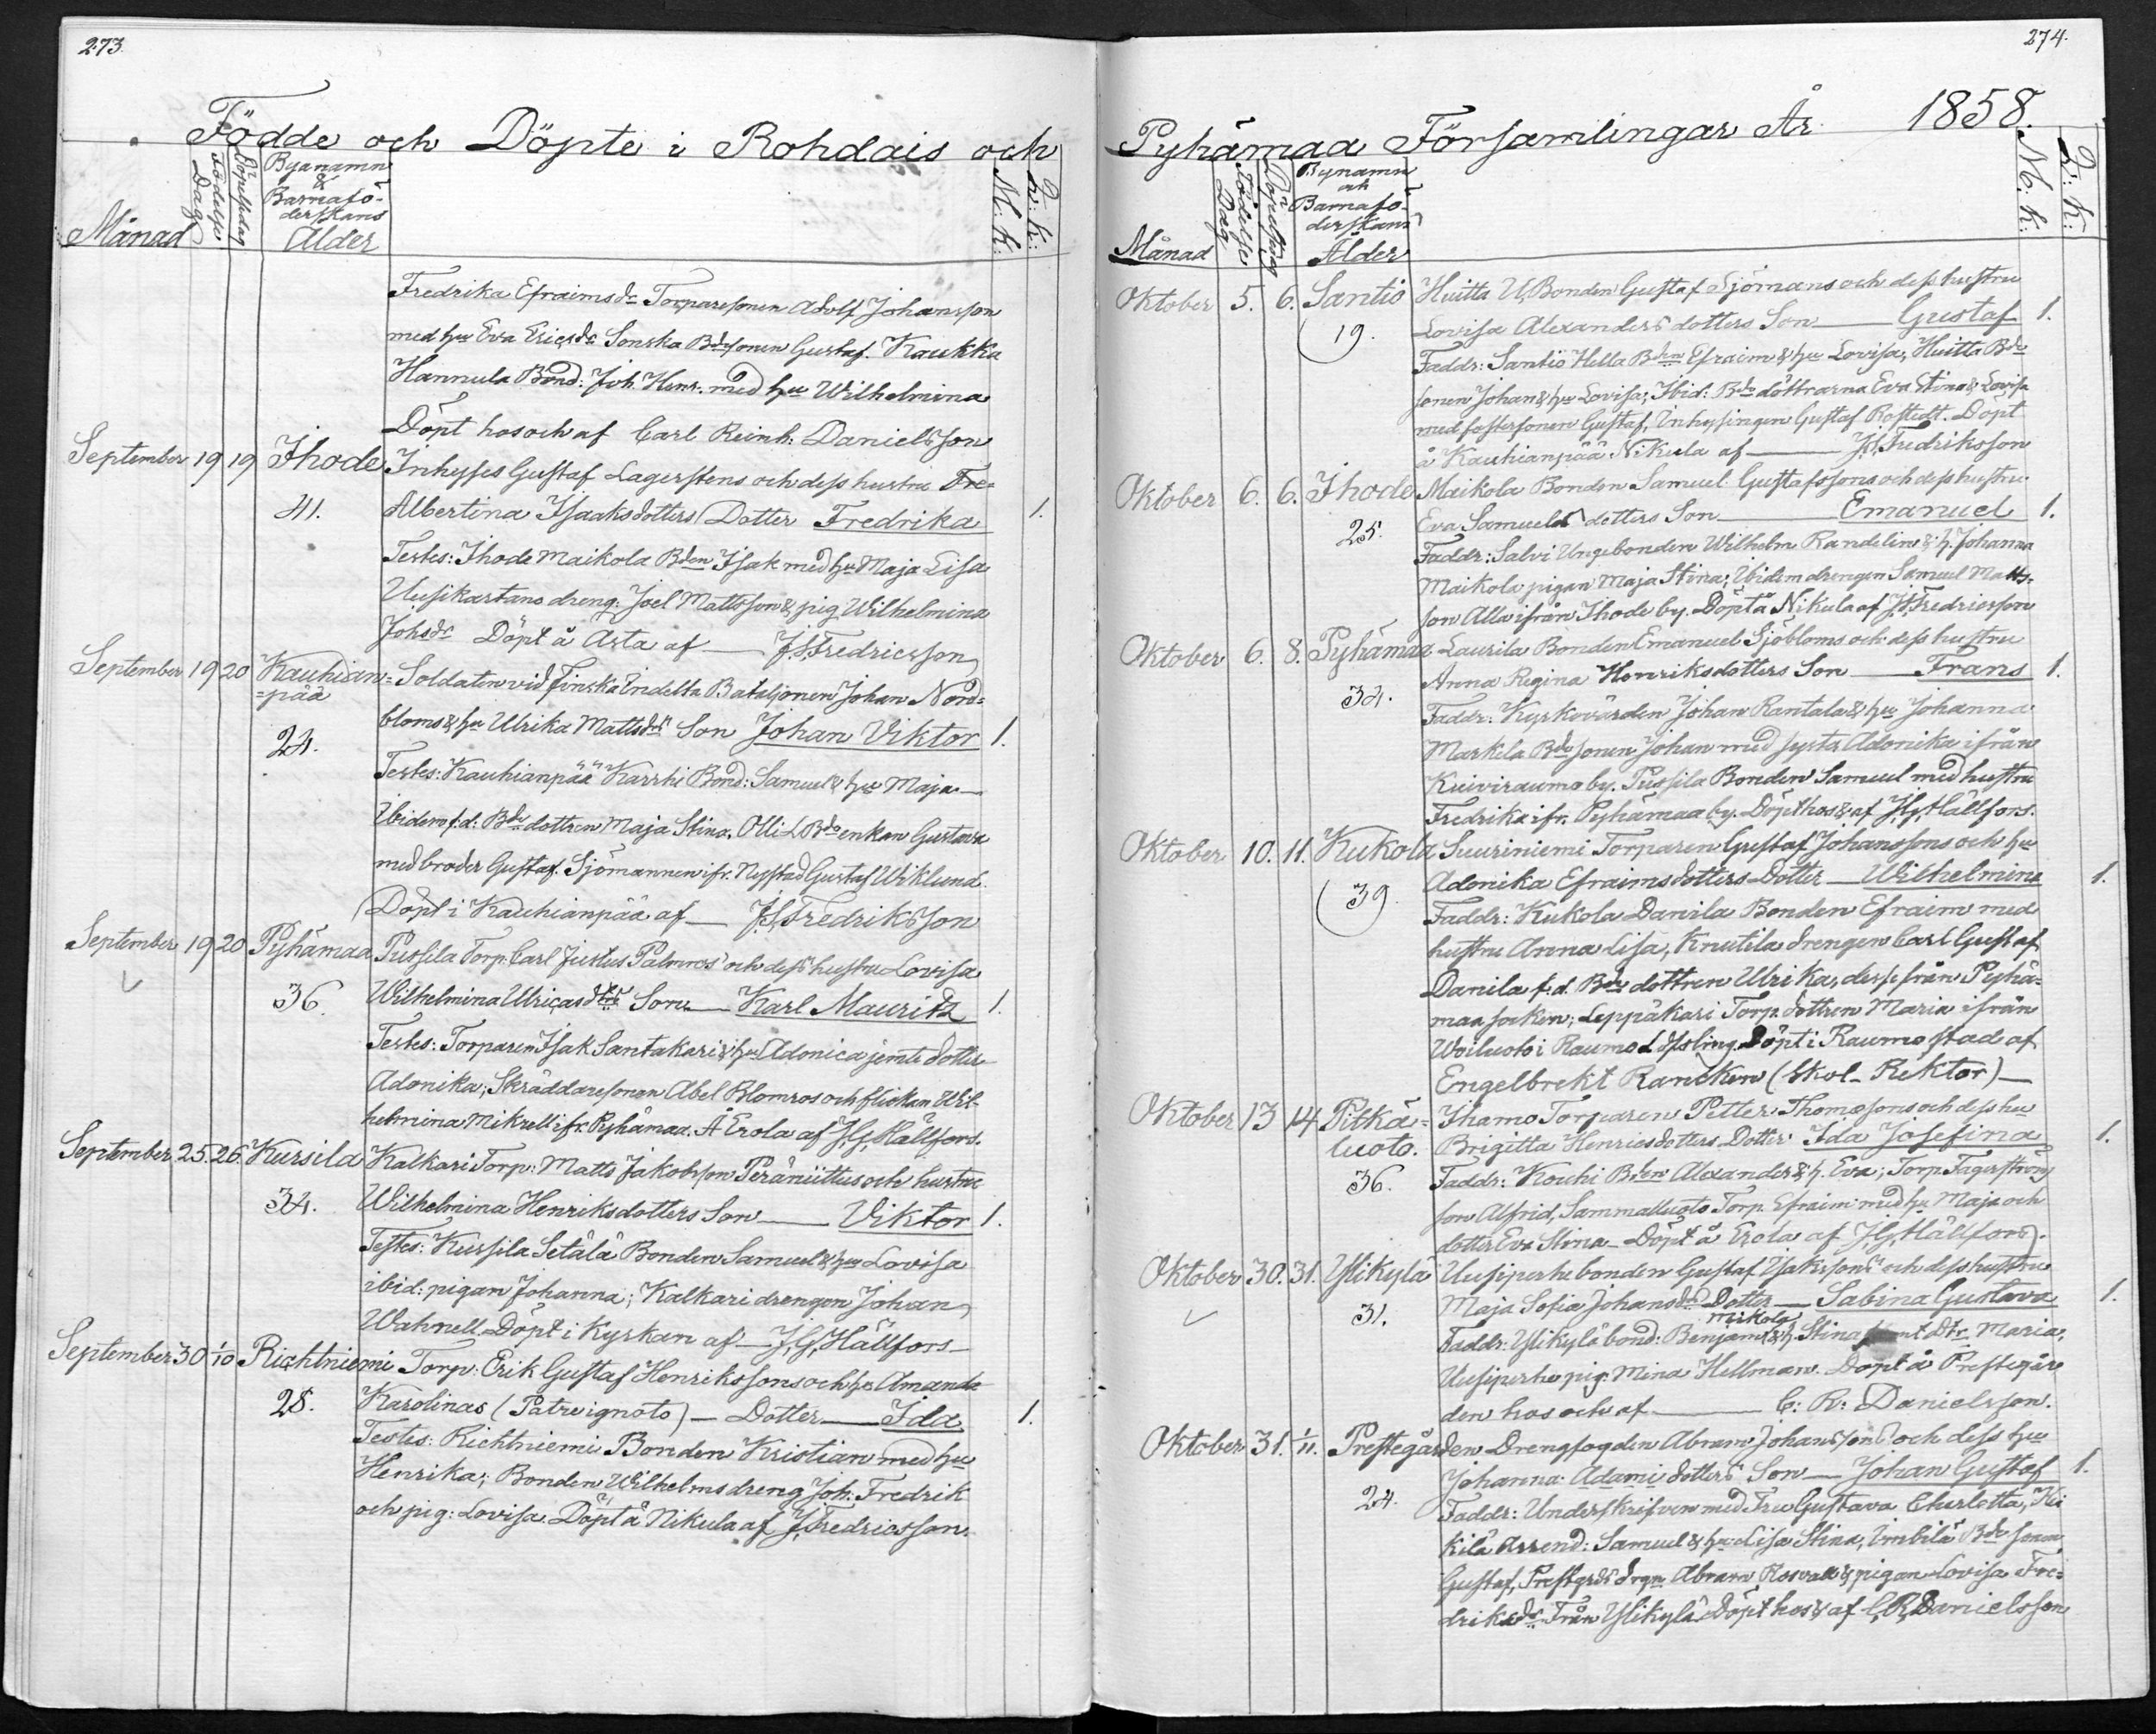 273.
Födde och Döpte i Rohdais och
Månad
Födelse Dag
Döpelsedag
Byanamn & Barnafö-derskans Ålder
M. k:
Q: k:
Fredrika Efraimsdr Torparesonen Adolf Johansson
med hu Eva Ericsdr Sonska Bdesonen Gustaf. Kaukka
Hannula Bond: Joh. Henr. med hu Wilhelmina
Döpt hos och af Carl Reinh: Danielsson
September 19 19 Ihode Inhyses Gustaf Lagerstens och dess hustru Fre=
41. Albertina Isaksdotters Dotter Fredrika 1.
Testes: Ihode Maikola Bden Isak med hu Maja Lisa
Uusikartano dreng: Joel Mattsson & pig Wilhelmina
Johsdr Döpt å Arta af — J.S. Fredricsson
September 19 20 Kauhian= Soldaten vid Finska Indelta Bataljonen Johan Nord=
=pää
24. bloms & hu Ulrika Mattsdrs Son Johan Viktor 1.
Testes: Kauhianpää Karrhi Bond: Samuel & hu Maja —
Ibidem f.d. Bde dottren Maja Stina, Olli L Bdeenkan Gustava
med broder Gustaf. Sjömannen ifr. Nystad Gustaf Wiklund.
Döpt i Kauhianpää af — J.S. Fredriksson
September 19 20 Pyhämaa Pussila Torp. Carl Justus Palmros och dess hustru Lovisa
36. Wilhelmina Ulricasdtrs Son — Karl Mauritz 1.
Testes: Torparen Isak Santakari & hu Adonica jemte dotter
Adonika; Skräddaresonen Abel Blomros och flickan Wil-
helmina Mikrell ifr. Pyhämaa. Å Erola af J.G. Hällfors.
September 25. 26. Kursila Kalkari Torp: Matts Jakobsson Peräniittus och hustru
34. Wilhelmina Henriksdotters Son — Viktor 1.
Testes: Kursila Setälä Bonden Samuel & hu Lovisa
ibid: pigan Johanna; Kalkari drengen Johan
Wahnell. Döpt i Kyrkan af — J.G. Hällfors —
September 30 1/10 Richtniemi Torp: Erik Gustaf Henrikssons och hu Amanda
28. Karolinas (Patre ignoto) — Dotter — Ida 1.
Testes: Richtniemi Bonden Kristian med hu
Henrika; Bonden Wilhelms dreng Joh: Fredrik
och pig: Lovisa. Döpt å Nikula af J. Fredricsson.
274.
Pyhämaa Församlingar År 1858.
Månad
Födelse Dag
Döpelsedag
Bynamn och Barnafö-derskans Ålder
M: k:
Q: k:
Oktober 5. 6. Santio Huitta U, Bonden Gustaf Sjömans och dess hustru
19. Lovisa Alexanders dotters Son — Gustaf 1.
Faddr: Santio Hella Bden Efraim & hu Lovisa, Huitta Bde
sonen Johan & hu Lovisa; Ibid: Bde döttrarna Eva Stina & Lovisa
med fostersonen Gustaf, Inhysingen Gustaf Rostedt. Döpt
å Kauhianpää Nikula af — J.S. Fredriksson
Oktober 6. 6. Ihode Maikola Bonden Samuel Gustafssons och dess hustru
25. Eva Samuels dotters Son — Emanuel 1.
Faddr: Salvi Ungebonden Wilhelm Randelin & h. Johanna
Maikola pigan Maja Stina; Ibidem drengen Samuel Matts-
son Alla ifrån Ihode by. Döpt å Nikula af J.S. Fredricsson
Oktober 6. 8. Pyhämaa Laurila Bonden Emanuel Sjöbloms och dess hustru
34. Anna Regina Henriksdotters Son — Frans 1.
Faddr: Kyrkovärden Johan Rantala & hu Johanna
Markla Bde sonen Johan med syster Adonika ifrån
Kuiviraumo by. Pussila Bonden Samuel med hustru
Fredrika ifr. Pyhämaa by. Döpt hos & af J.G. Hällfors.
Oktober 10. 11. Kukola Suuriniemi Torparen Gustaf Johanssons och hu
39. Adonika Efraimsdotters Dotter — Wilhelmina 1.
Faddr: Kukola Danila Bonden Efraim med
hustru Anna Lisa, Knutila drengen Carl Gustaf
Danila f.d. Bde dottren Ulrika, desse från Pyhä-
maa socken; Leppäkari Torp. dottren Maria ifrån
Woiluoto i Raumo L. Döpt i Raumo stad af
Engelbrekt Rancken (Skol-Rektor) —
Oktober 13 14 Pitkä= Ihamo Torparen Petter Thomassons och dess hu
luoto. Brigitta Henricsdotters Dotter Ida Josefina 1.
36. Faddr: Kouhi Bden Alexander & h. Eva; Torp. Fagerströms
son Alfrid, Sammalluoto Torp. Efraim med hu Maja och
dotter Eva Stina — Döpt å Erola af J.G. Hällfors.
Oktober 30. 31. Ylikylä Uusiperhe bonden Gustaf Isakssons och dess hustru
31. Maja Sofia Johansdrs Dotter — Sabina Gustava 1.
Mikola
Faddr: Ylikylä bond: Benjam: & h. Stina jemt dtr. Maria.
Uusiperhe pig. Mina Hellman. Döpt å Prestegår
den hos och af — C: R: Danielsson.
Oktober 31. 1/11. Prestegården Drengfogden Abram Johanssons och dess hu
24. Johanna Adami dotters Son — Johan Gustaf 1.
Faddr: Underskrifven med Fru Gustava Charlotta, Kii
kilä Arrend: Samuel & hu Lisa Stina, Imbilä Bde sonen
Gustaf, Prestgrds drgn Abram Rosvall & pigan Lovisa Fre=
driksdr. Från Ylikylä. Döpt hos & af C.R. Danielsson